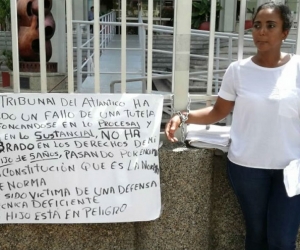 TRIBUNAL DEL ATLANTICO HA
DO UN FALLO DE UNA TUTELA
FONCANDOSE EN LO PROCESAL Y
EN LO SUSTANCIAL, NO HA
BRADO EN LOS DERECHOS DE MI
HIJO DE 5 AÑOS, PASANDO POR ENCIMA
CONSTITUCIÓN QUE ES LA NORMA
E NORMA
SIDO VICTIMA DE UNA DEFENSA
CNICA DEFICIENTE
HIJO ESTA EN PELIGRO